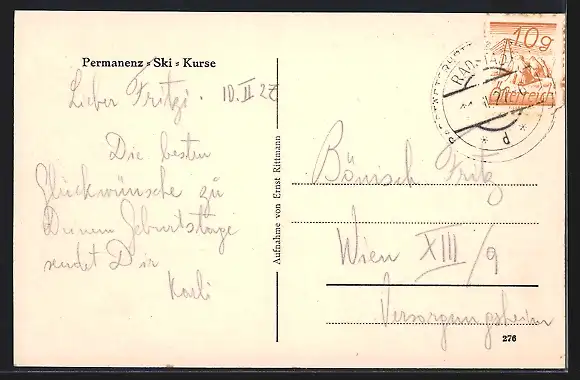 Permanenz = Ski = Kurse
Lieber Fritzi. 10.II 27
Die besten
Glückwünsche zu
Deinem Geburtstage
sendet Dir
Karli
Aufnahme von Ernst Rittmann
10g
Österreich
RADSTADT
Bönisch Fritz
Wien XIII/9
Versorgungsheim
276